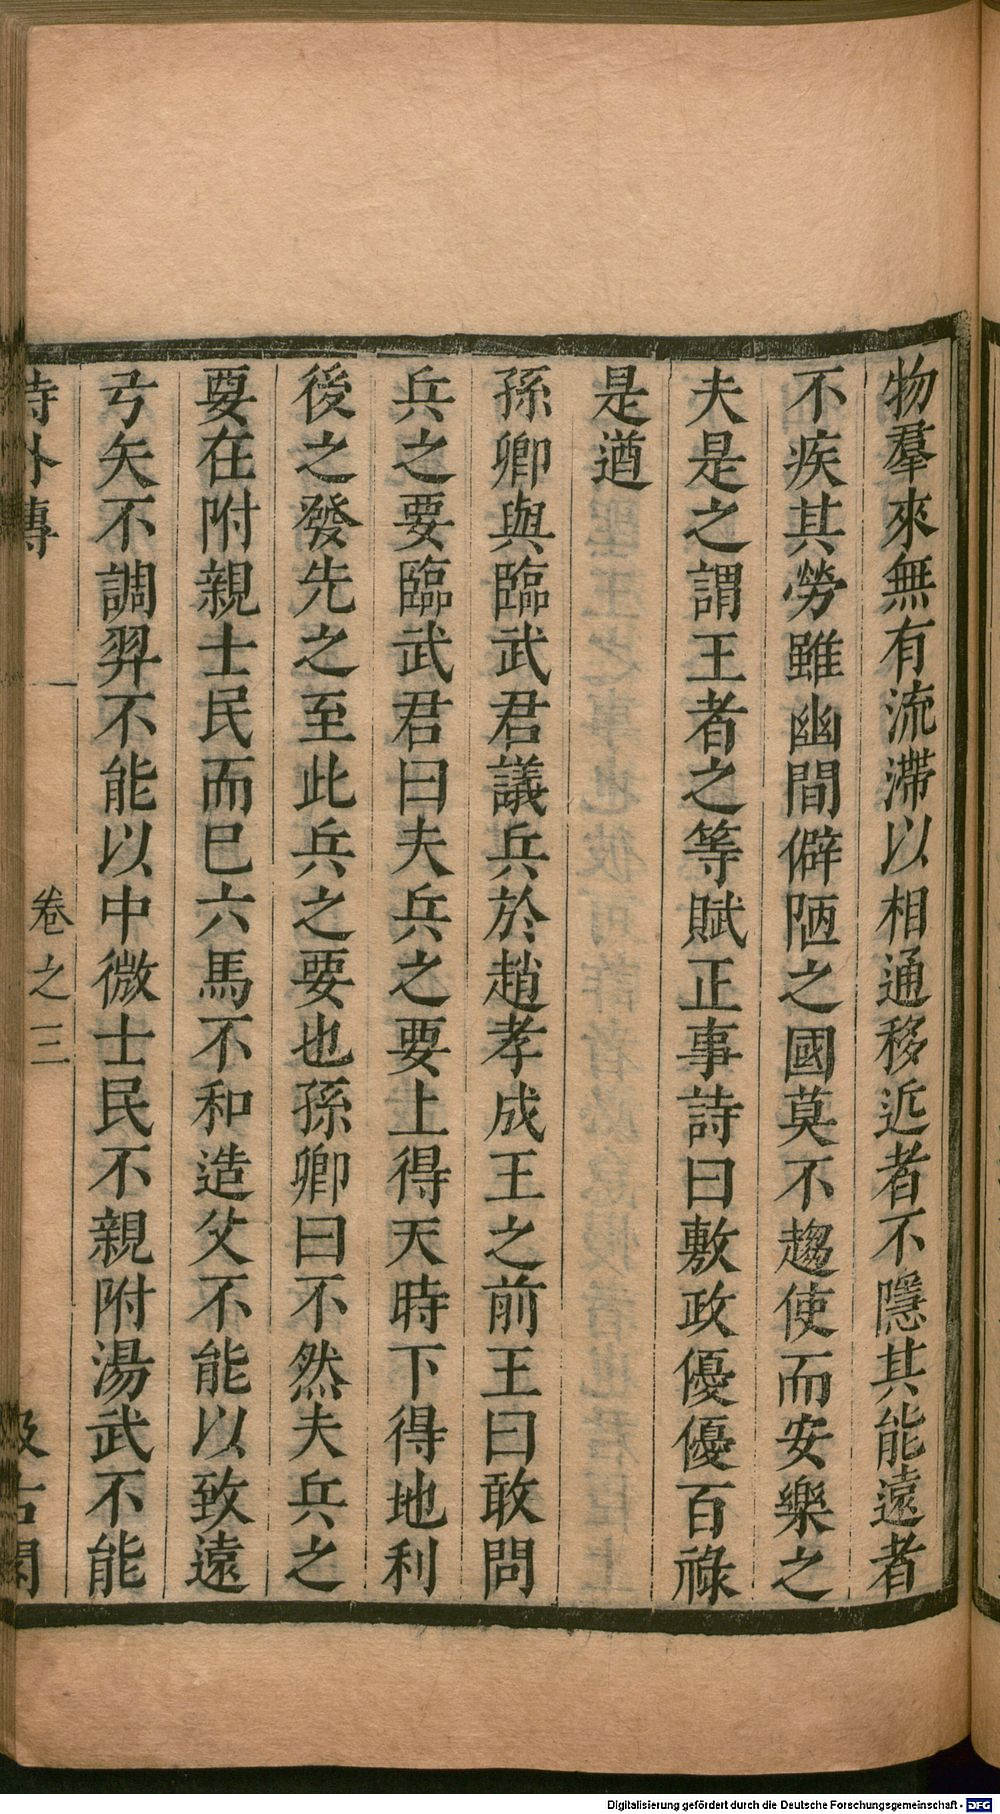 物羣來無有流滯以相通移近者不隱其能遠者
不疾其勞雖幽間僻陋之國莫不趨使而安樂之
夫是之謂王者之等賦正事詩曰敷政優優百祿
是遒
孫卿與臨武君議兵於趙孝成王之前王曰敢問
兵之要臨武君曰夫兵之要上得天時下得地利
後之發先之至此兵之要也孫卿曰不然夫兵之
要在附親士民而已六馬不和造父不能以致遠
弓矢不調羿不能以中微士民不親附湯武不能
詩外傳 卷之三 汲古閣
Digitalisierung gefördert durch die Deutsche Forschungsgemeinschaft - DFG